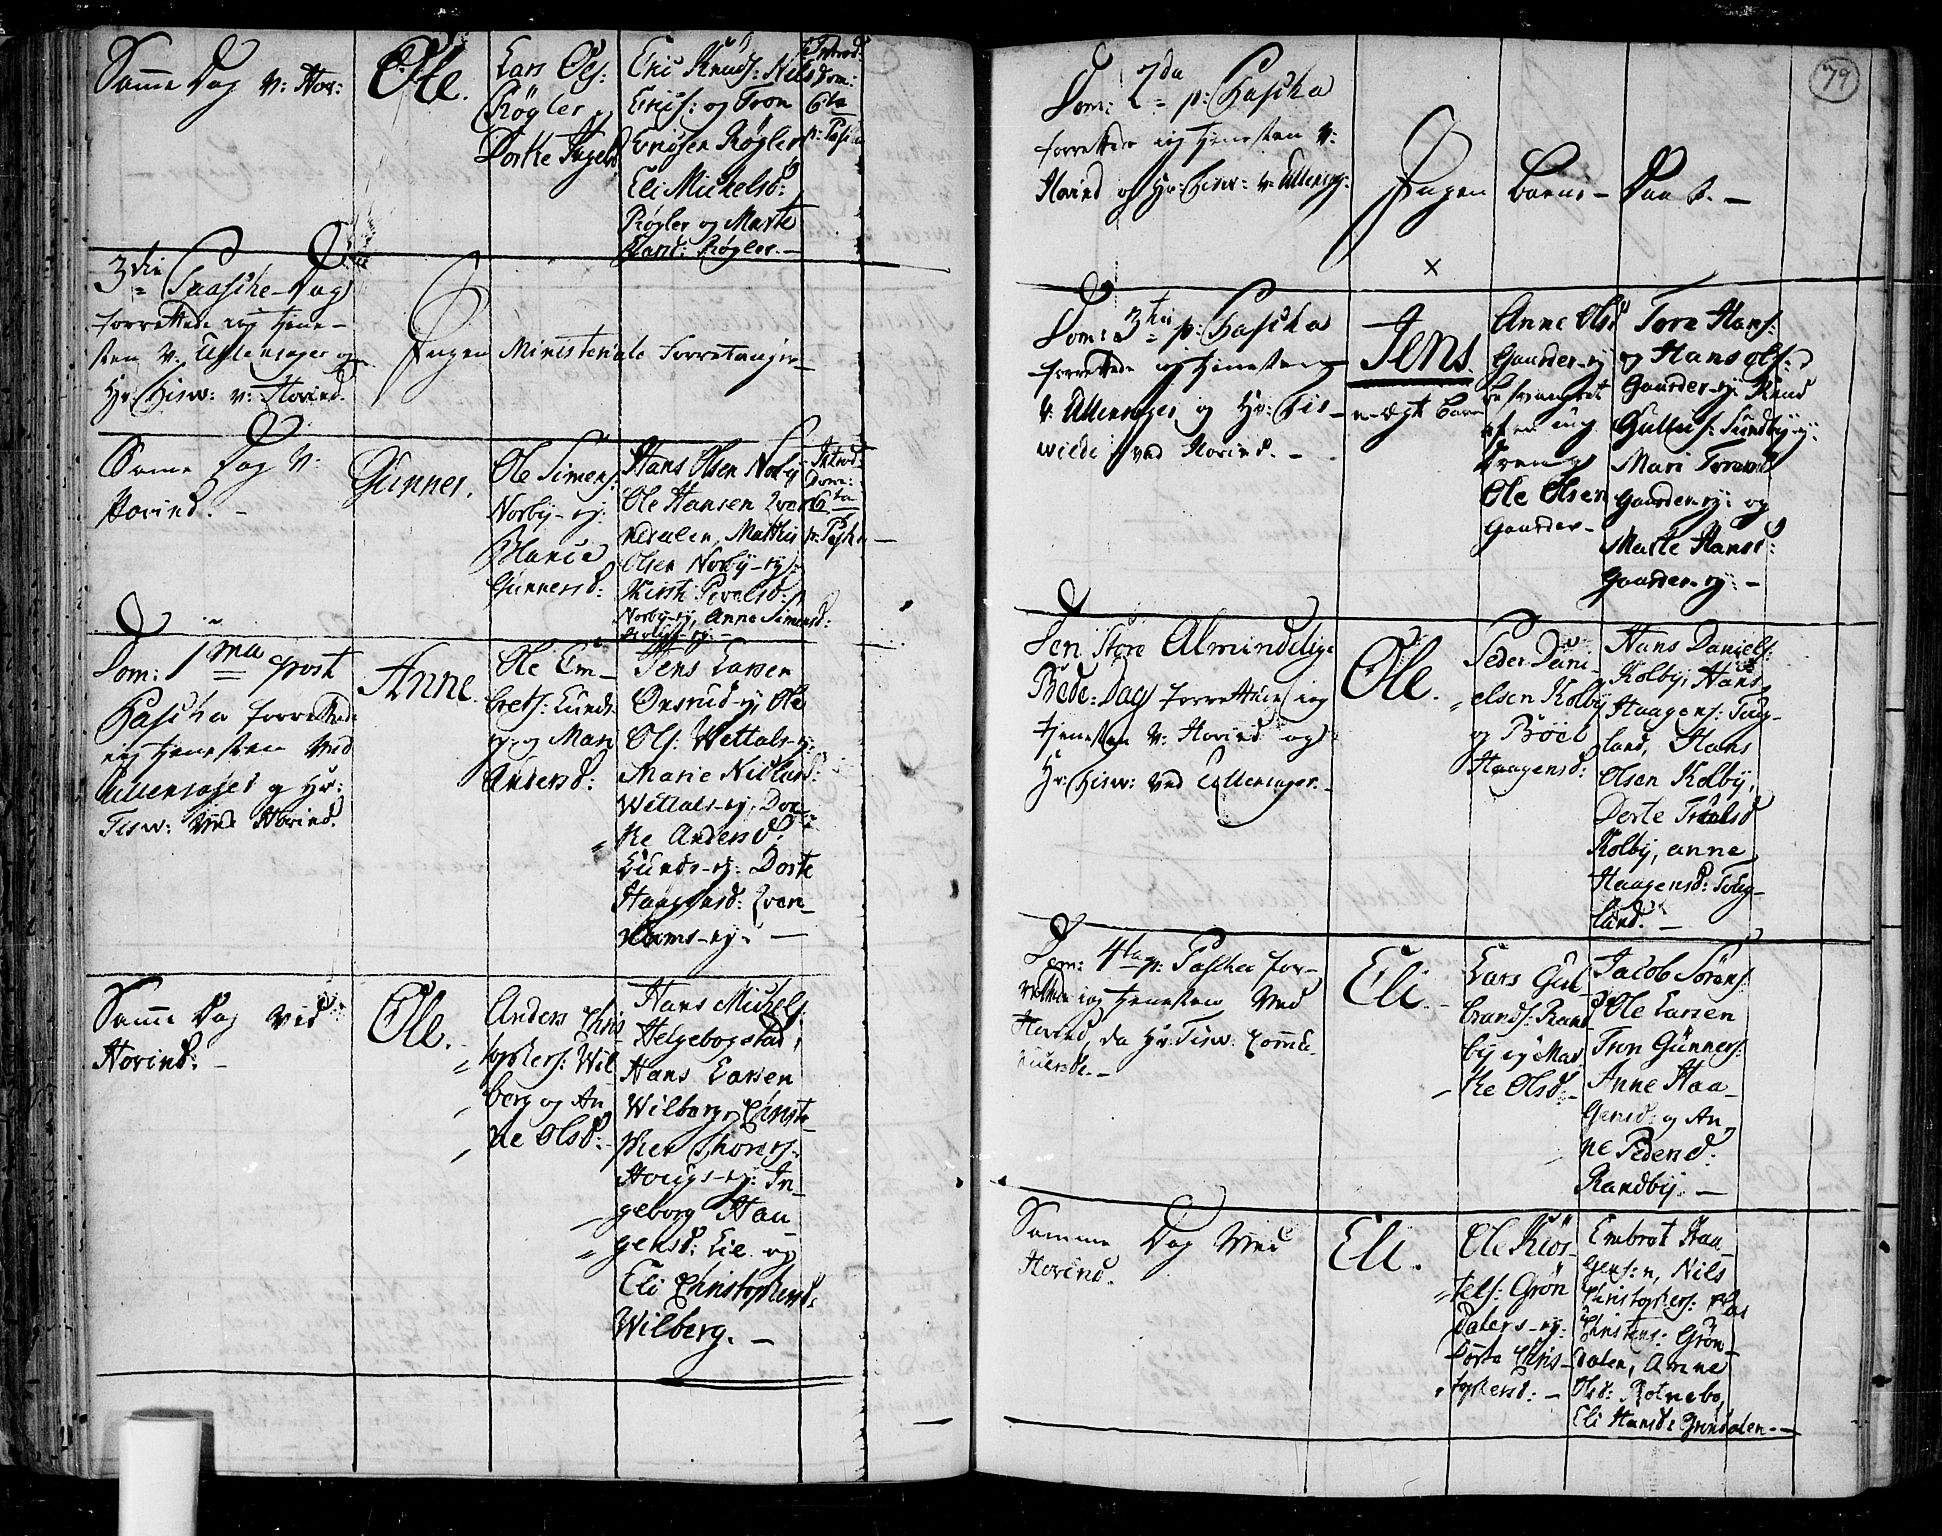 Samme Dag v: Hov:
Ole.
Lars Ols:
Røgler
Dorthe Ingeb
Eric Knuds: Nils
Erics: og Tron
Ericsen Røgler
Eli Michelsd:
Røgler og Marte
Hansd: Røgler. –
Introd:
Dom:
6ta
p: Pasch
3die Paaske-Dag
forrettede ieg Tiene-
sten v. Ullensager og
Hr: Tisw: v: Hovind.
Ingen Ministeriale Forretninger
Same Dag v:
Hovind. –
Gunner.
Ole Simens:
Norby-ey:
Marie
Gunnersd:
Hans Olsen Norby
Ole Hansen Qver
nedalen, Matthis
Olsen Norby-ey:
Kirsti Povelsd:
Norby-ey, Anne Simensd:
Introd:
Dom:
6ta
p: Pasch
Dom: 1ma post
Pascha forrettede
ieg Tienesten ved
Ullensager og Hr:
Tisw: ved Hovind.
Anne
Ole Em-
brets: Lunds
ey: og Mari
Andersd:
Jens Larsen
Onsrud-ey Ole
Ols: Wettals-ey
Marie Nielsd:
Wettals-ey, Dor-
the Andersd:
Lunds-ey: Dorte
Haagensd: Qven-
-ey. –
Samme Dag ved
Hovind: –
Ole.
Anders Chris
tophers: Wil
berg og An
ne Olsd:
Hans Michels:
Helgebogstad,
Hans Larsen
Wilberg, Christo-
pher Thorers:
Hougs-ey: In-
geborg Haa-
gensd: Lie og
Eli Christophersd:
Wilberg. –
79
Dom: 2da p: Pascha
forrettede ieg Tienesten v:
Hovind og Hr: Tisw: v: Ullensag:
Ingen Barne-Daab. –
x
Dom: 3tia p: Pascha
forrettede ieg Tienesten
v: Ullensager og Hr: Tis-
wilde ved Hovind. –
Jens.
u-ægte Barn
Anne Olsd
Gaarder-ey
besvangret
af en ung
Dreng
Ole Olsen
Gaarder-
Tore Hans:
og Hans Ols:
Gaarder-ey Knud
Gulles: Sundby-ey:
Mari
Gaarder-ey: og
Marte Hansd:
Gaarder-ey: –
Den Store Almindelige
Bede-Dag forrettede ieg
Tienesten v: Hovind og
Hr: Tisw: ved Ullensager.
Ole.
Peder Dani-
elsen Kolby
og Böel
Haagensd:
Hans Daniels:
Kolby, Hans
Haagens: Tug-
land, Hans
Olsen Kolby,
Dorte Trulsd
Kolby, Anne
Haagensd: Tug-
land. –
Dom: 4ta p: Pascha for-
rettede ieg Tienesten ved
Hovind, da Hr: Tisw: Commu-
nicerede. –
Eli.
Lars Gul-
brands: Rand
by og Mar
the Olsd: –
Jacob Sørens:
Ole Larsen
Tron Gunners:
Anne Haa-
gensd: og An-
ne Pedersd:
Randby. –
Samme Dag ved
Hovind.
Eli.
Ole Kiøs-
tels: Grøn
dalens-ey:
Dorte Chris-
tophersd: –
Embret Haa-
gens:n, Nils
Christophers:
Christens: Grøn-
dalen, Anne
Olsd: Rotnebo,
Eli Hansd: Grøndalen. –